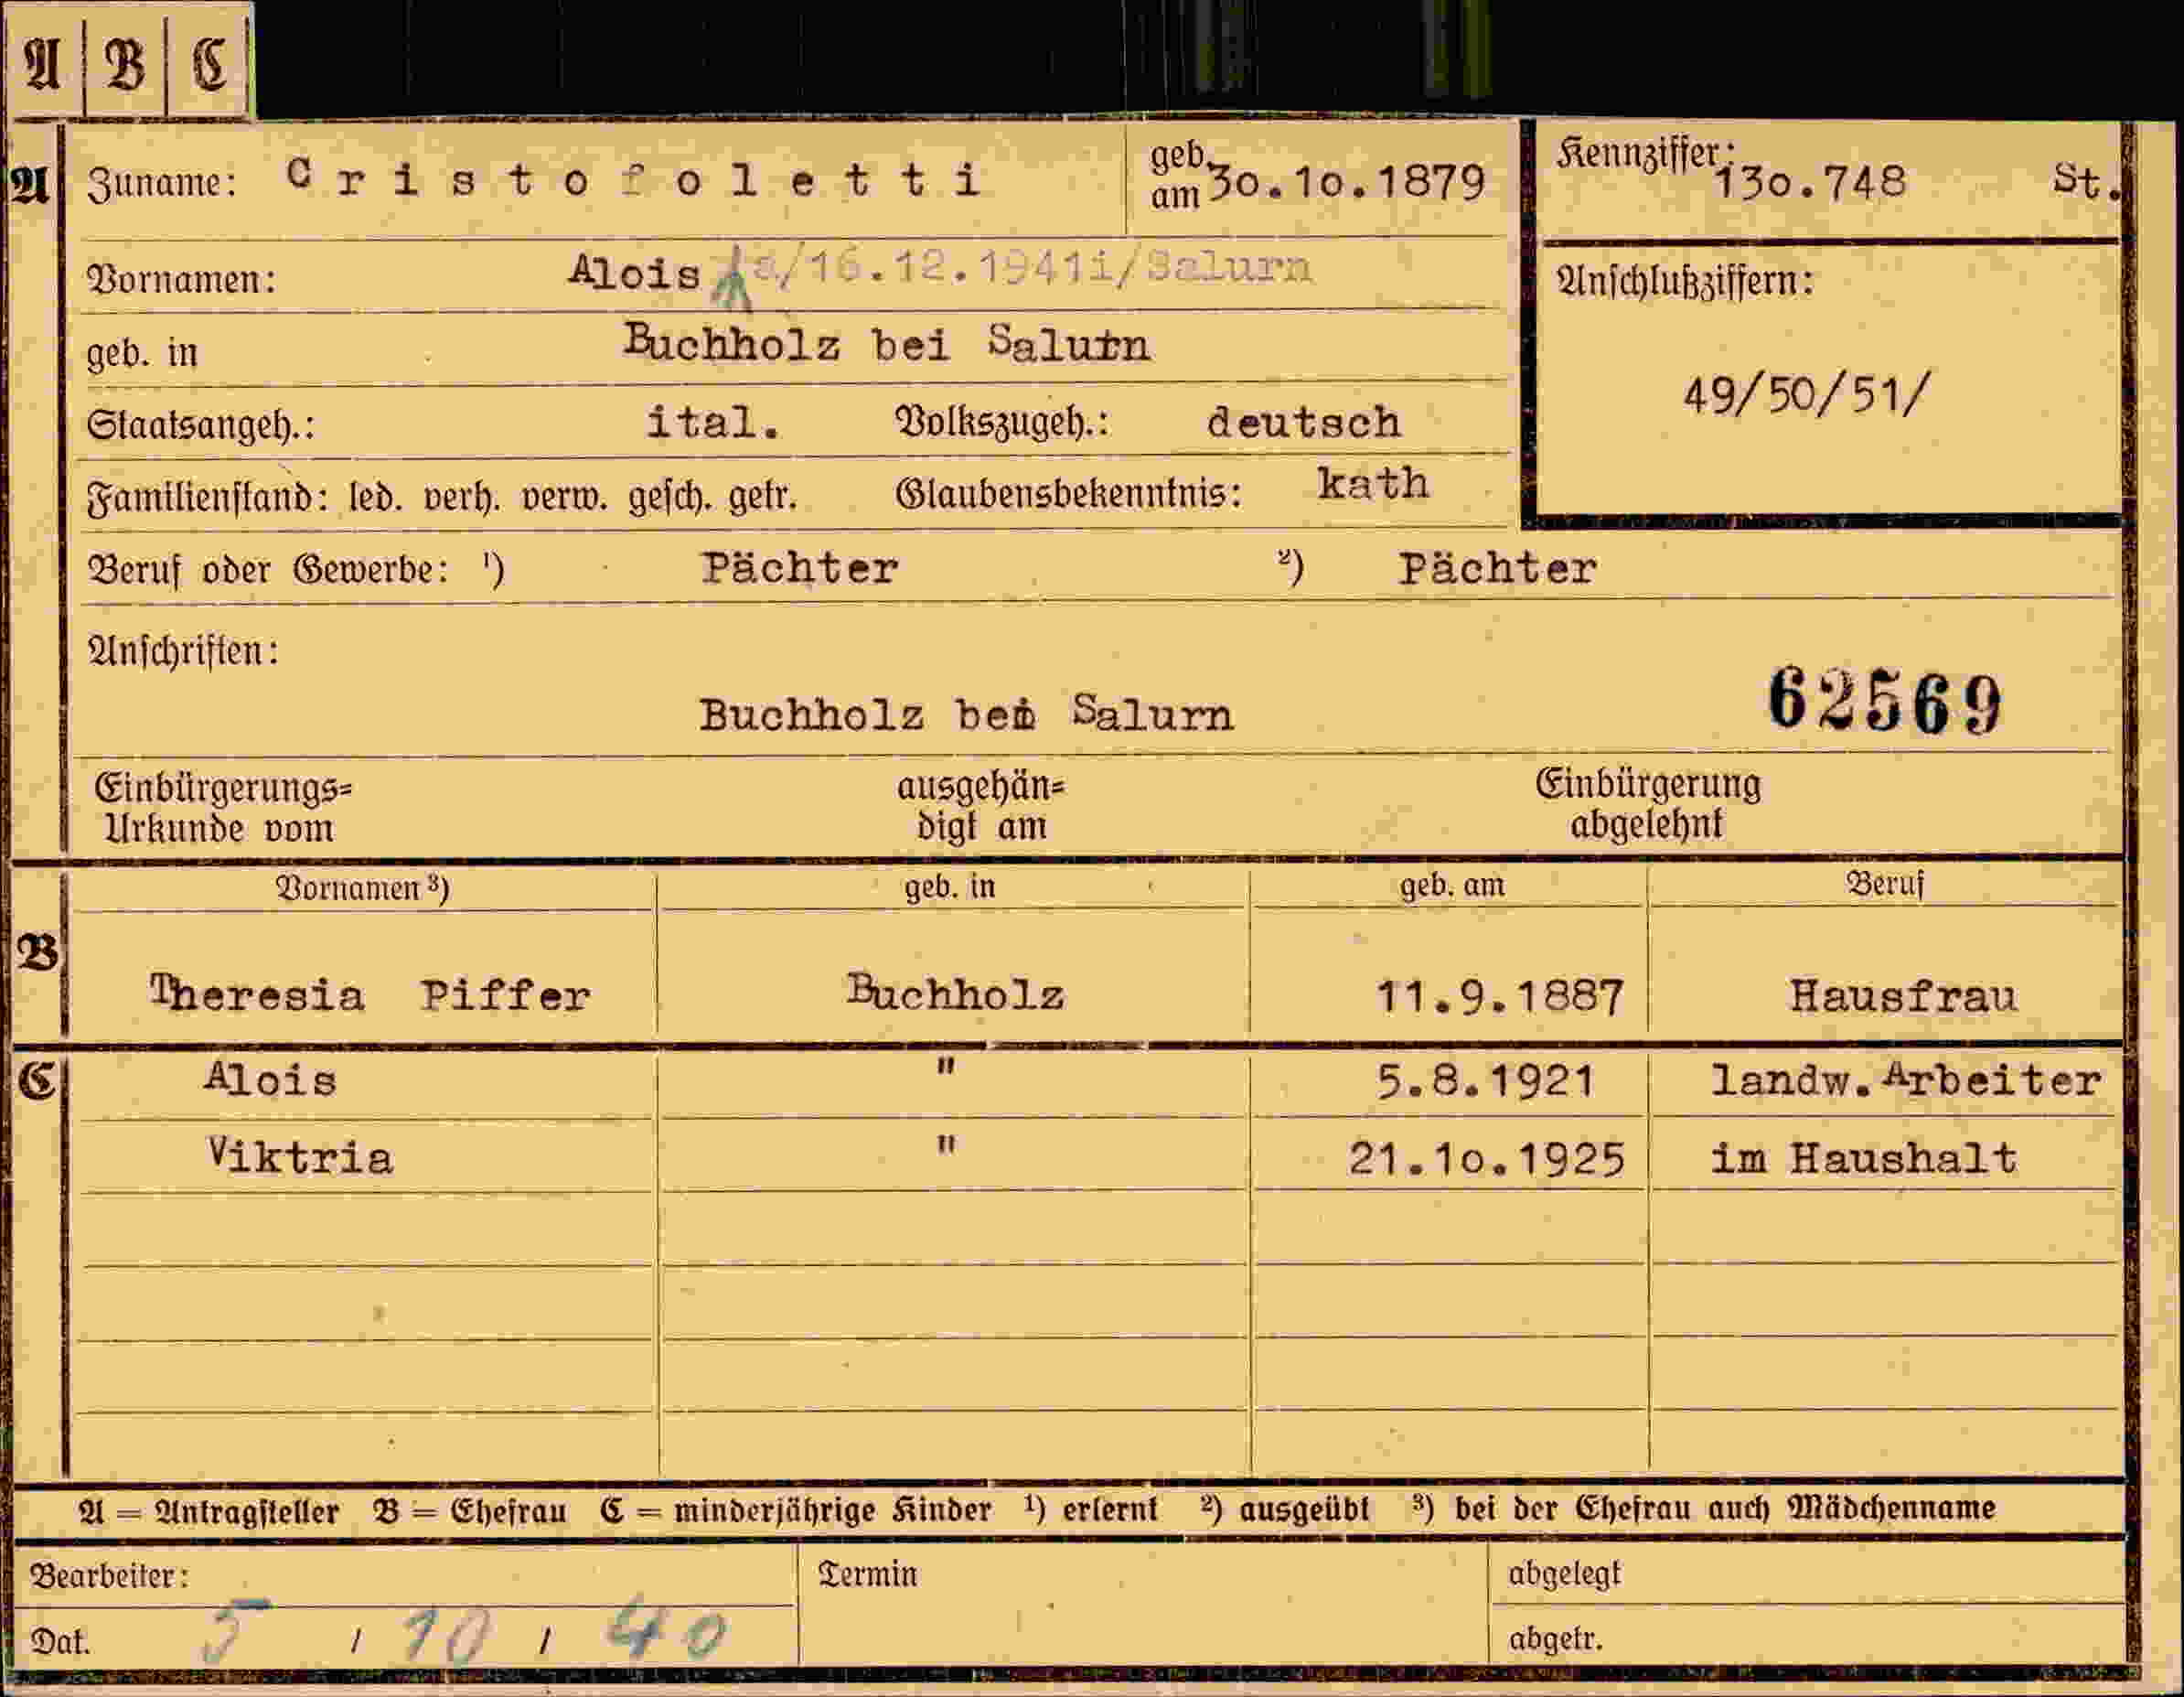 A B C
A Zuname: Cristofoletti geb. am 30.10.1879 Kennziffer: 130.748 St.
Vornamen: Alois a/16.12.1941i/Salurn Anschlußziffern:
geb. in Buchholz bei Salurn
49/50/51/
Staatsangeh.: ital. Volkszugeh.: deutsch
Familienstand: led. verh. verw. gesch. getr. Glaubensbekenntnis: kath
Beruf oder Gewerbe: ¹) Pächter ²) Pächter
Anschriften:
Buchholz bei Salurn 62569
Einbürgerungs= ausgehän= Einbürgerung
Urkunde vom digt am abgelehnt
Vornamen ³) geb. in geb. am Beruf
B Theresia Piffer Buchholz 11.9.1887 Hausfrau
C Alois " 5.8.1921 landw. Arbeiter
Viktria " 21.10.1925 im Haushalt
A = Antragsteller B = Ehefrau C = minderjährige Kinder ¹) erlernt ²) ausgeübt ³) bei der Ehefrau auch Mädchenname
Bearbeiter: Termin abgelegt
Dat. 5 / 10 / 40 abgetr.